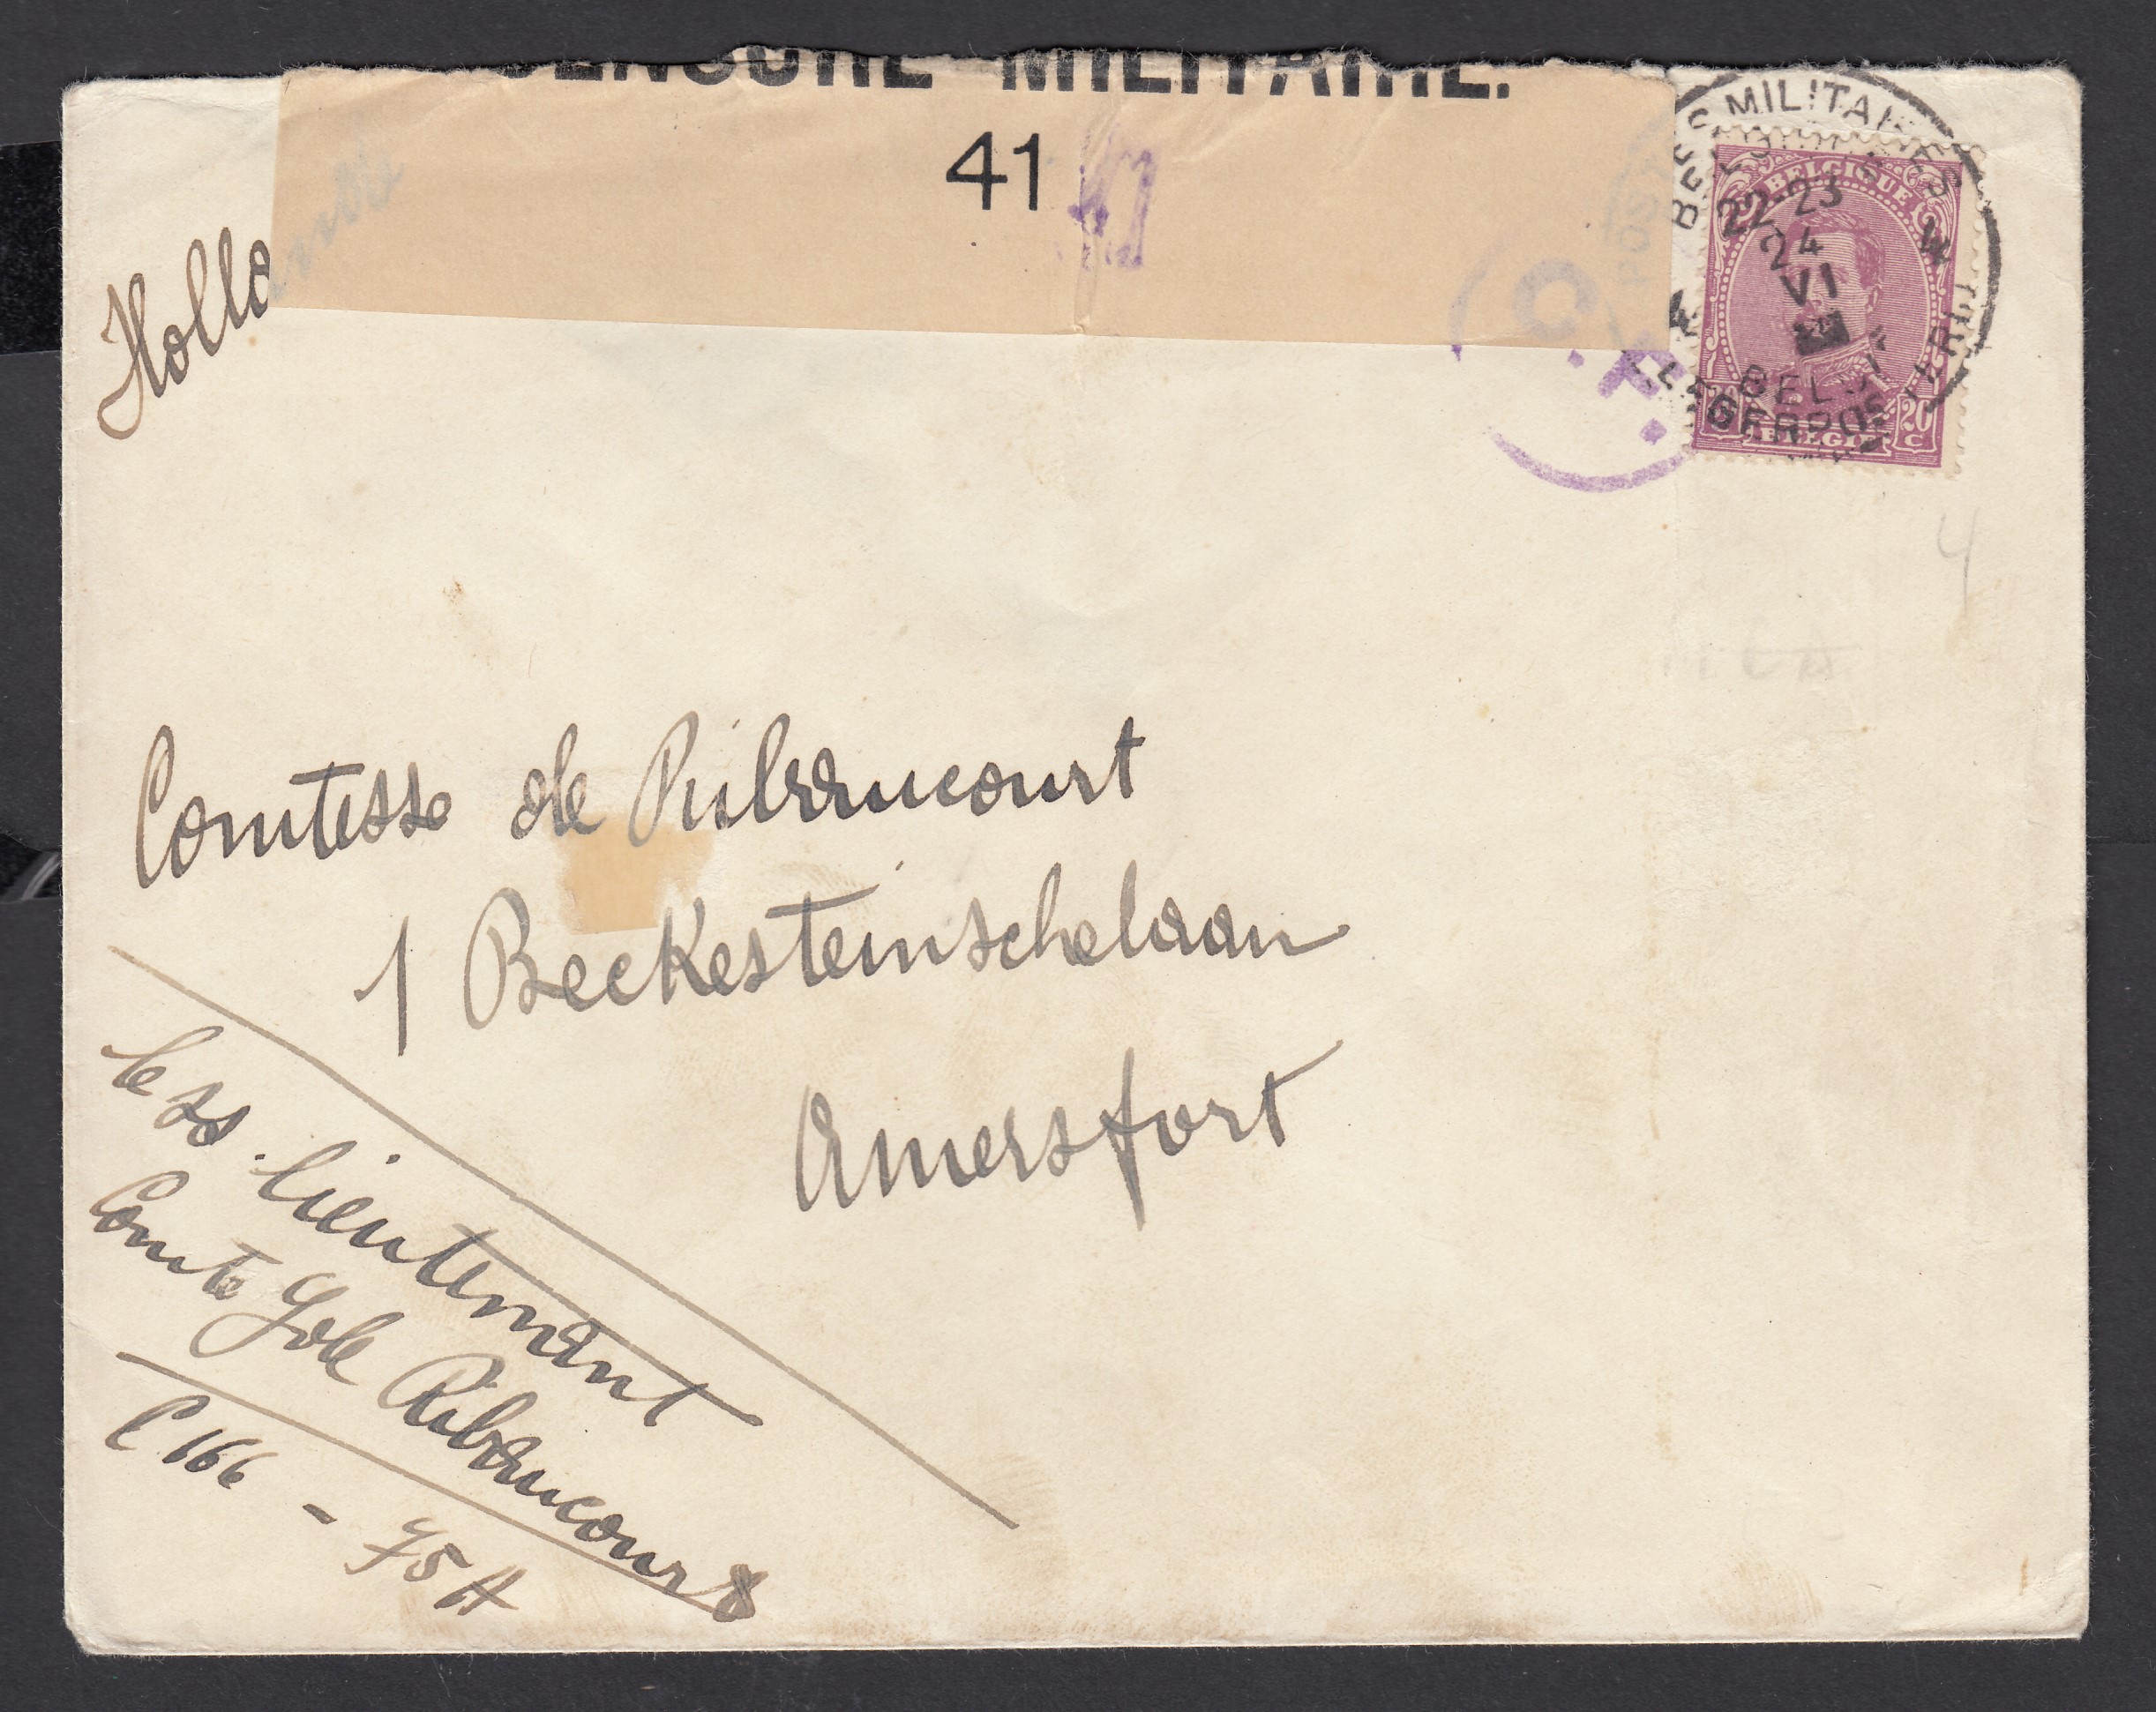 CENSURE MILITAIRE.
41
Hollande
C.F.
POSTES MILITAIRES
BELGIQUE
22-23
24
VI
4
BELGIË
LEGERPOSTERIJ
BELGIQUE
BELGIË
20 C
4
Comtesse de Ribaucourt
1 Beekesteinschelaan
Amersfort
le ss. lieutenant
Comte G de Ribaucourt
C 166 - 75 A